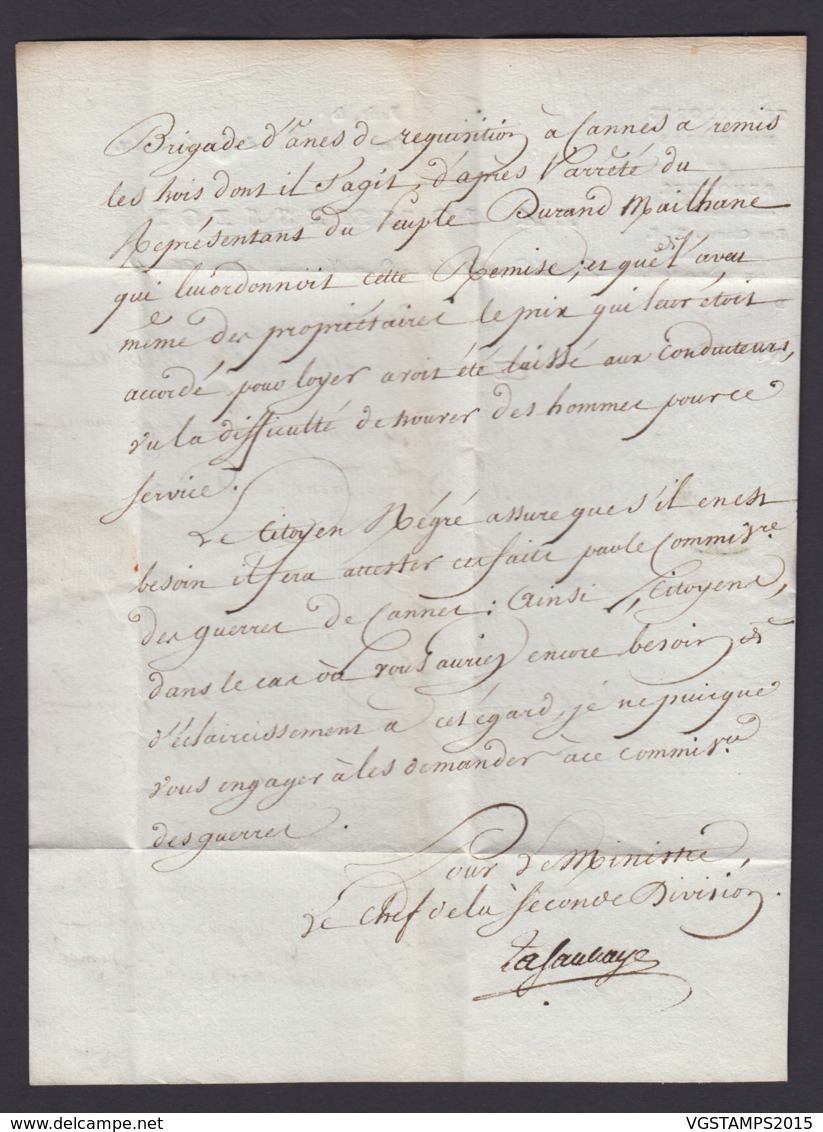 Brigade d'ânes de requisition à Cannes a remis
les trois dont il s'agit, d'après l'arrêté du
Représentans du Peuple Durand Mailhane
qui lui ordonnoit cette Remise; et que de l'aveu
même des propriétaires le prix qui leur étoit
accordé pour loyer avoit été laissé aux Conducteurs,
vu la difficulté de trouver des hommes pour ce
service.
Le Citoyen Négré assure que s'il en est
besoin il fera attester ces faits par le Commiss.re
des guerres de Cannes: Ainsi, Citoyens,
dans le cas où vous auriez encore besoin
d'éclaircissement à cet égard, je ne puis que
vous engager à les demander à ce commiss.re
des guerres.
Pour le Ministre,
Le Chef de la Seconde Division.
Lasaulsaye
VGSTAMPS2015